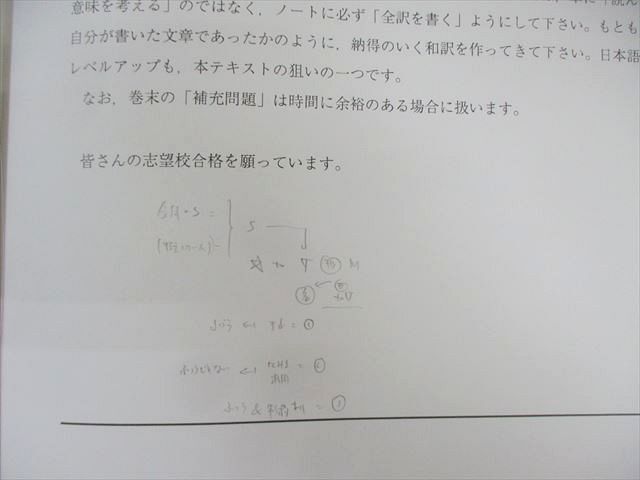 意味を考える」のではなく，ノートに必ず「全訳を書く」ようにして下さい。もとも
自分が書いた文章であったかのように，納得のいく和訳を作ってきて下さい。日本語
レベルアップも，本テキストの狙いの一つです。
なお，巻末の「補充問題」は時間に余裕のある場合に扱います。
皆さんの志望校合格を願っています。
S
to V
toV
ふつう ← = ①
← = ②
ふつう & = ①